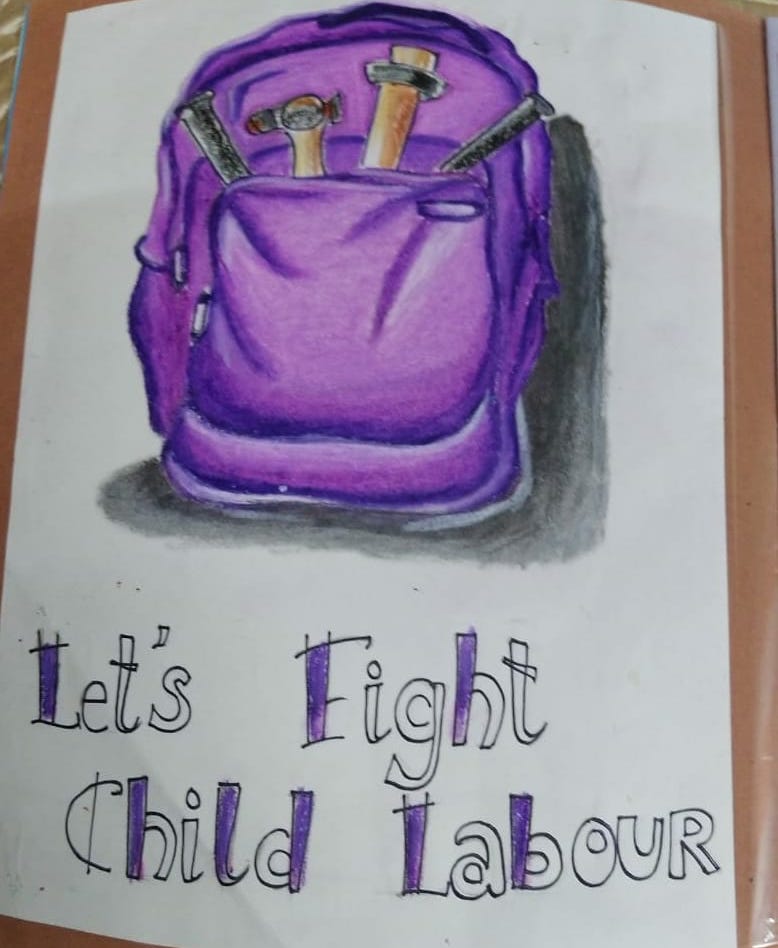 Let's Fight
Child LabOUR